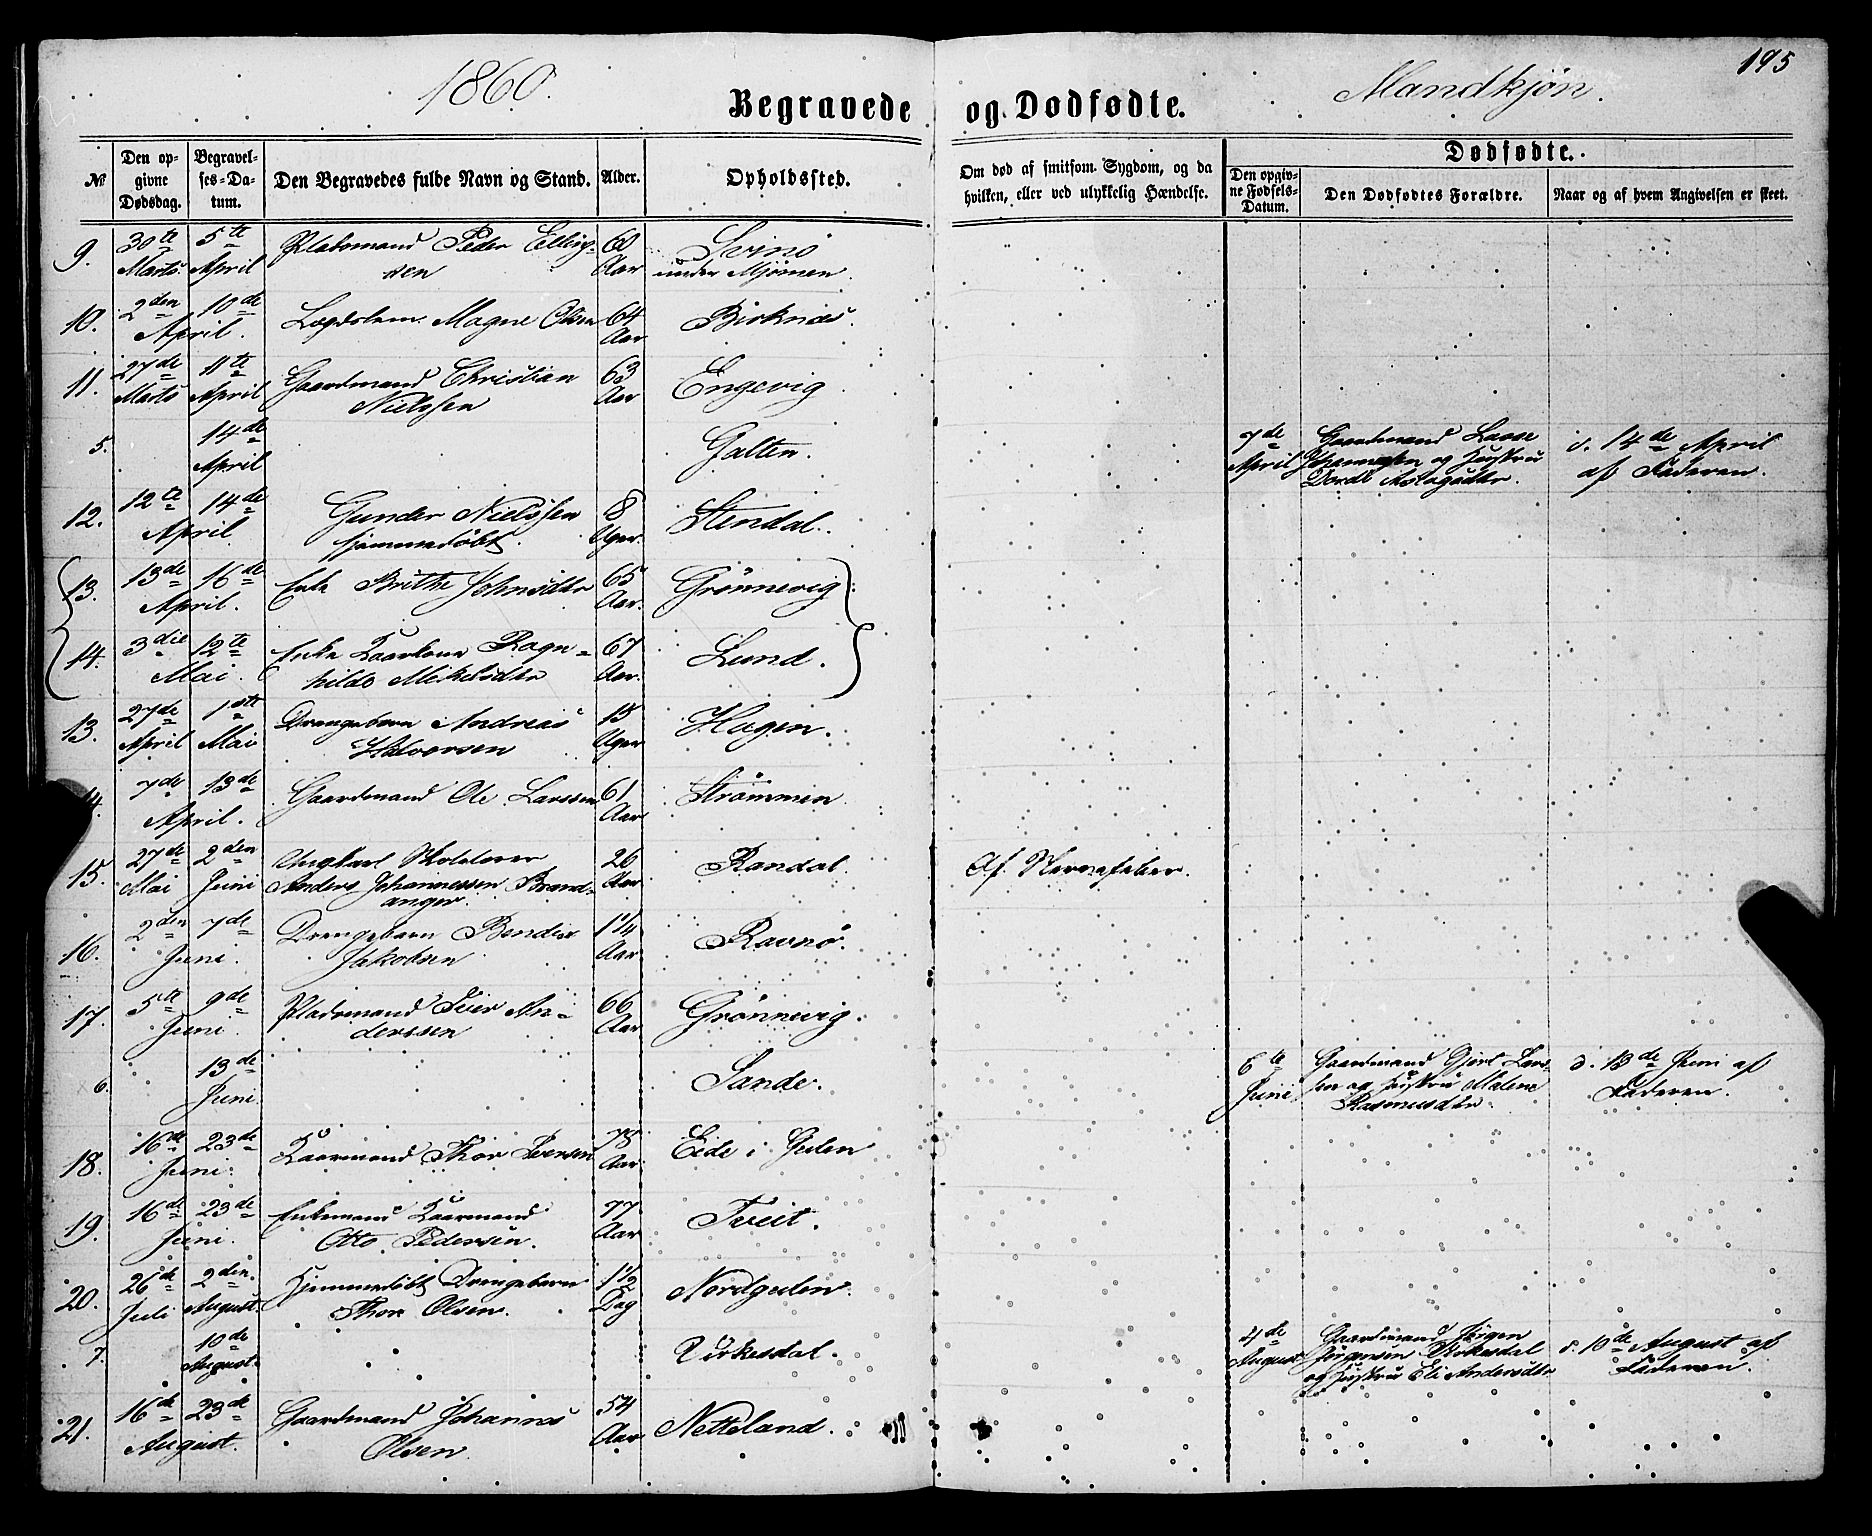 195
1860.
Begravede og Dødfødte.
Mandkjøn.
No
Den opgivne Dødsdag.
Begravelses-Datum.
Den Begravedes fulde Navn og Stand.
Alder.
Opholdssted.
Om død af smitsom Sygdom, og da hvilken, eller ved ulykkelig Hændelse.
Dødfødte.
Den opgivne Fødsels-Datum.
Den Dødfødtes Forældre.
Naar og af hvem Angivelsen er skeet.
9. 30te Marts 5te April Pladsmand Peder Ellingsen 60 Aar Svinø under Mjømen.
10. 2den April 10de Lægdslem Magne Olsen 64 Aar Birknæs.
11. 27de Marts 11te April Gaardmand Christian Nielssen 63 Aar Engevig
5. 14de April Galten. 7de April Gaardmand Lasse Johannessen og Hustru Dorde d. 14de April af Faderen.
12. 12te April 14de Gunder Nielssen hjemmedøbt 8 Uger. Stendal.
13. 13de April 16de Enke Brithe Johnsdtr 65 Aar. Grønnevig
14. 3die Mai 12te Enke Kaarkone Ragnhilde Mikelsdtr 67 Aar. Lund.
13. 27de April 1ste Mai Drengebarn Andreas Halvorsen 15 Uger Hagen.
14. 7de April. 13de Gaardmand Ole Larssen 61 Aar Strømmen
15. 27de Mai 2den Juni Ungkarl Skolelærer Anders Johannessen Brandanger. 26 Aar Randal. Af Nervefeber.
16. 2den Juni 7de Drengebarn Bendix Jakobsen 1 1/4 Aar Ravnø.
17. 5te Juni 9de Pladsmand Peder Anderssen 66 Aar Grønnevig.
6. 13de Juni Sande. 6te Juni Gaardmand Gjert Larssen og Hustru Malene Rasmusdtr. d. 13de Juni af Faderen.
18. 16de Juni 23de Kaarmand Thor Iversen 78 Aar Eide i Gulen
19. 16de Juni. 23de Enkemand Kaarmand Otto Pedersen. 77 Aar Tveit.
20. 26de Juli 2den August Hjemmedøbt Drengebarn Thor Olsen. 1 1/2 Dag Nordgulen.
7. 10de August Virkesdal. 4de August Gaardmand Jørgen Jørgensen Virkesdal og Hustru Eli Andersdtr d. 10de August af Faderen.
21. 16de August. 23de Gaardmand Johannes Olsen 54 Aar Netteland.